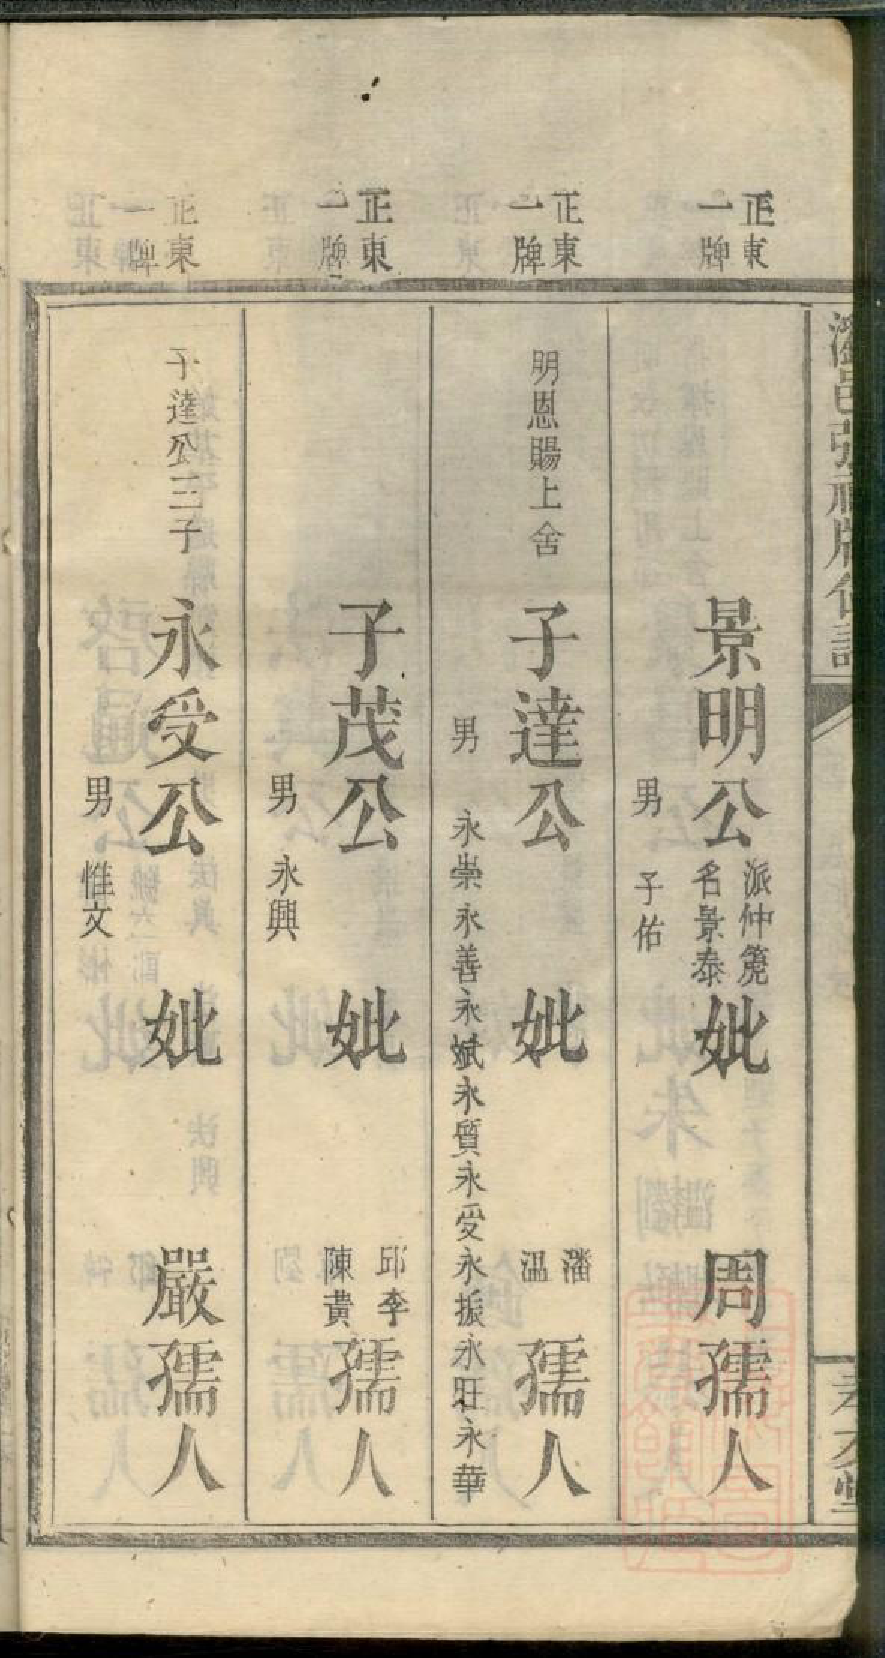 正東
一牌
景明公
派仲篪
名景泰
妣
周孺人
男 子佑
正東
一牌
明恩賜上舍
子達公
妣
潘
溫
孺人
男 永崇永善永斌永質永受永振永旺永華
正東
一牌
子茂公
妣
邱李
陳黄
孺人
男 永興
正東
一牌
子達公三子
永受公
妣
嚴孺人
男 惟文